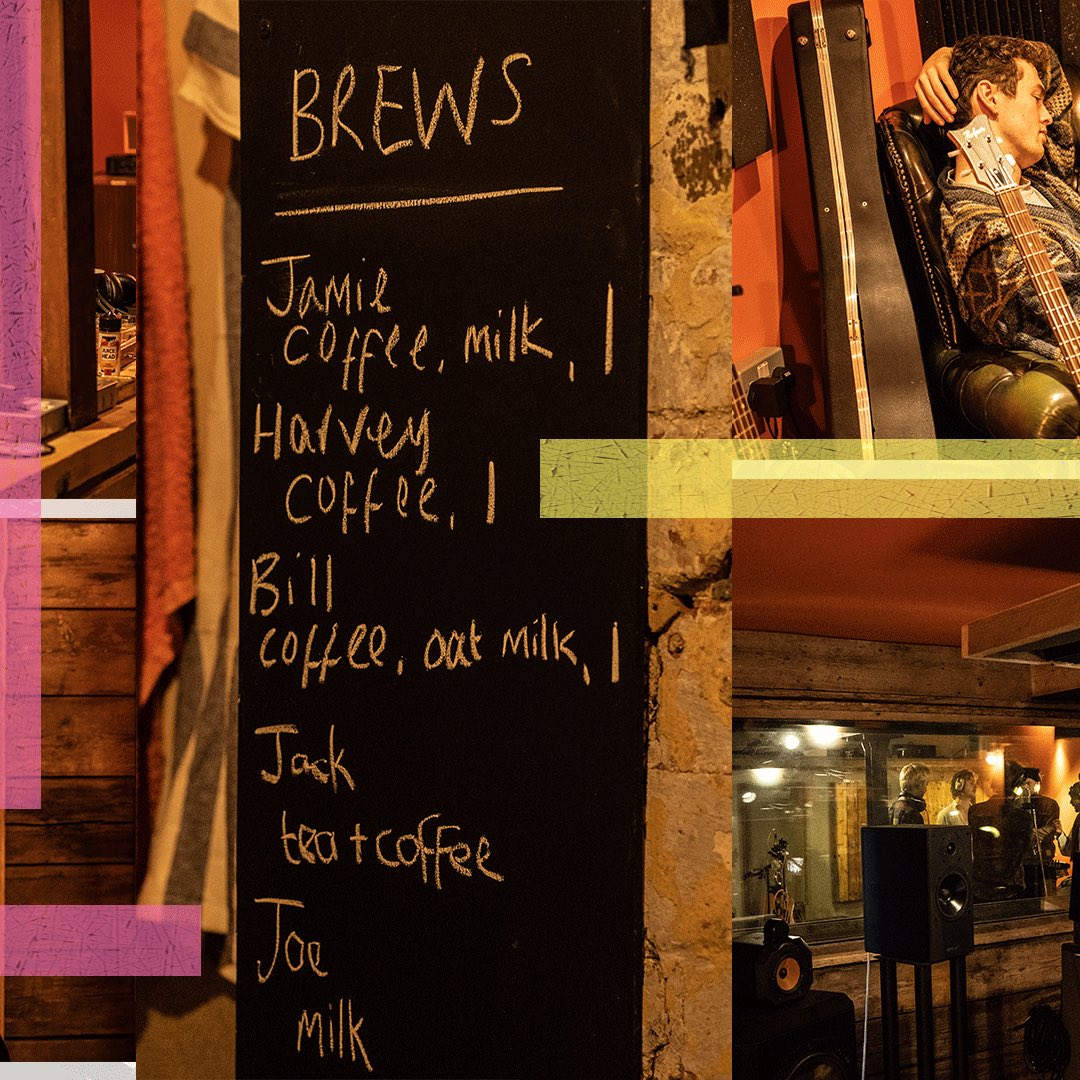 BREWS
Jamie
coffee, milk, 1
Harvey
coffee, 1
Bill
coffee, oat milk, 1
Jack
tea + coffee
Joe
milk
JUICE
HEAD